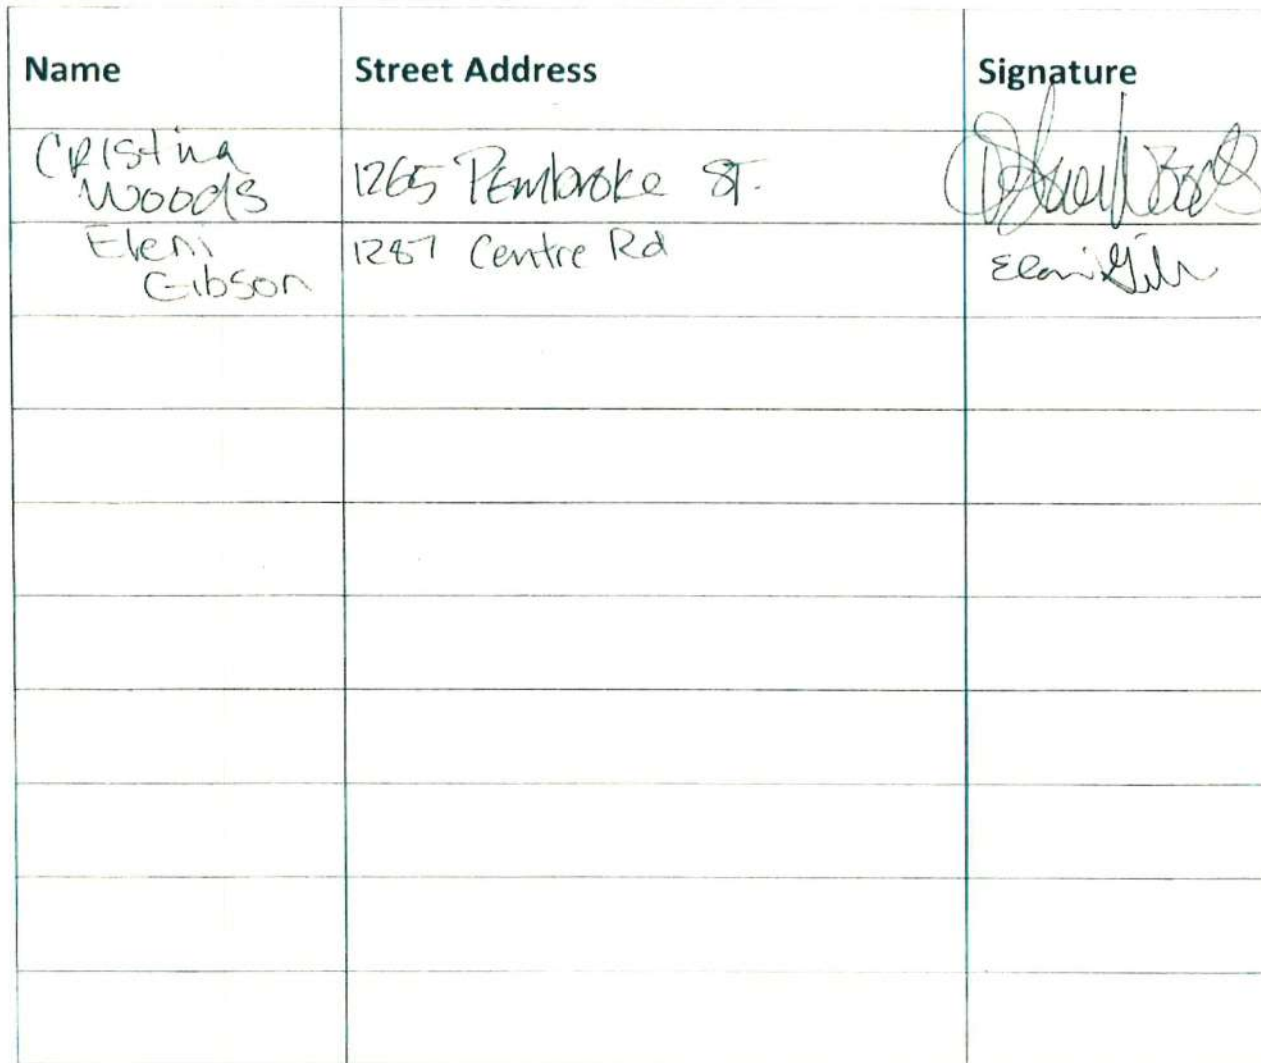 Name Street Address Signature
CRIStina
Woods
1265 Pembroke ST.
Eleni
Gibson
1287 Centre Rd